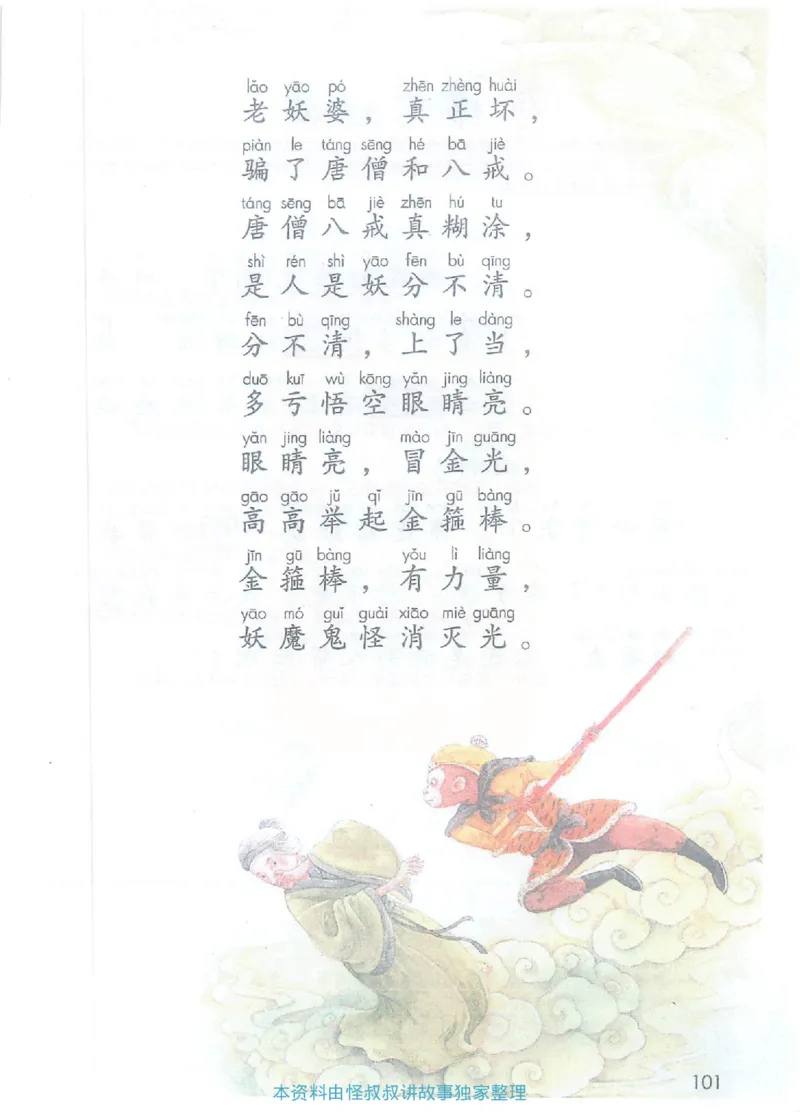 lǎo yāo pó zhēn zhèng huài
老妖婆，真正坏，
piàn le táng sēng hé bā jiè
骗了唐僧和八戒。
táng sēng bā jiè zhēn hú tu
唐僧八戒真糊涂，
shì rén shì yāo fēn bù qīng
是人是妖分不清。
fēn bù qīng shàng le dàng
分不清，上了当，
duō kuī wù kōng yǎn jing liàng
多亏悟空眼睛亮。
yǎn jing liàng mào jīn guāng
眼睛亮，冒金光，
gāo gāo jǔ qǐ jīn gū bàng
高高举起金箍棒。
jīn gū bàng yǒu lì liàng
金箍棒，有力量，
yāo mó guǐ guài xiāo miè guāng
妖魔鬼怪消灭光。
101
本资料由怪叔叔讲故事独家整理